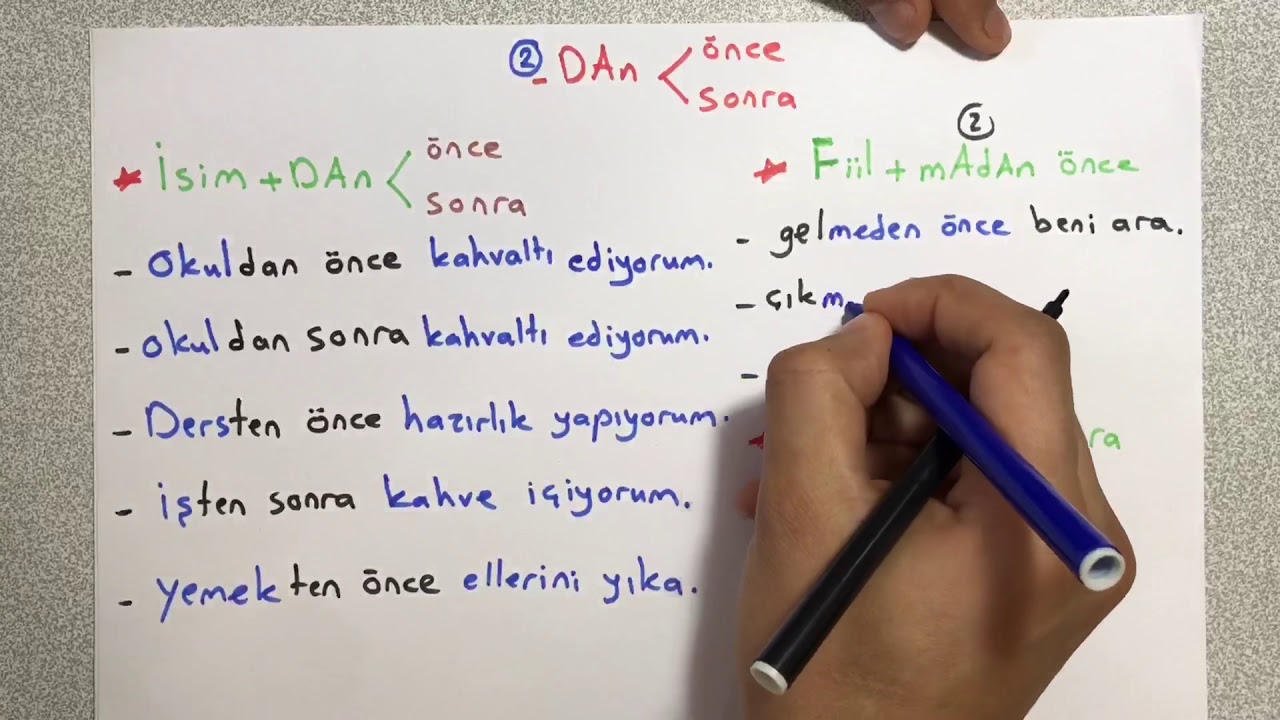 ② -DAn < önce
sonra
★ İsim + DAn < önce
sonra
- Okuldan önce kahvaltı ediyorum.
- okuldan sonra kahvaltı ediyorum.
- Dersten önce hazırlık yapıyorum.
- işten sonra kahve içiyorum.
- yemekten önce ellerini yıka.
②
★ Fiil + mAdAn önce
- gelmeden önce beni ara.
- çıkm
-